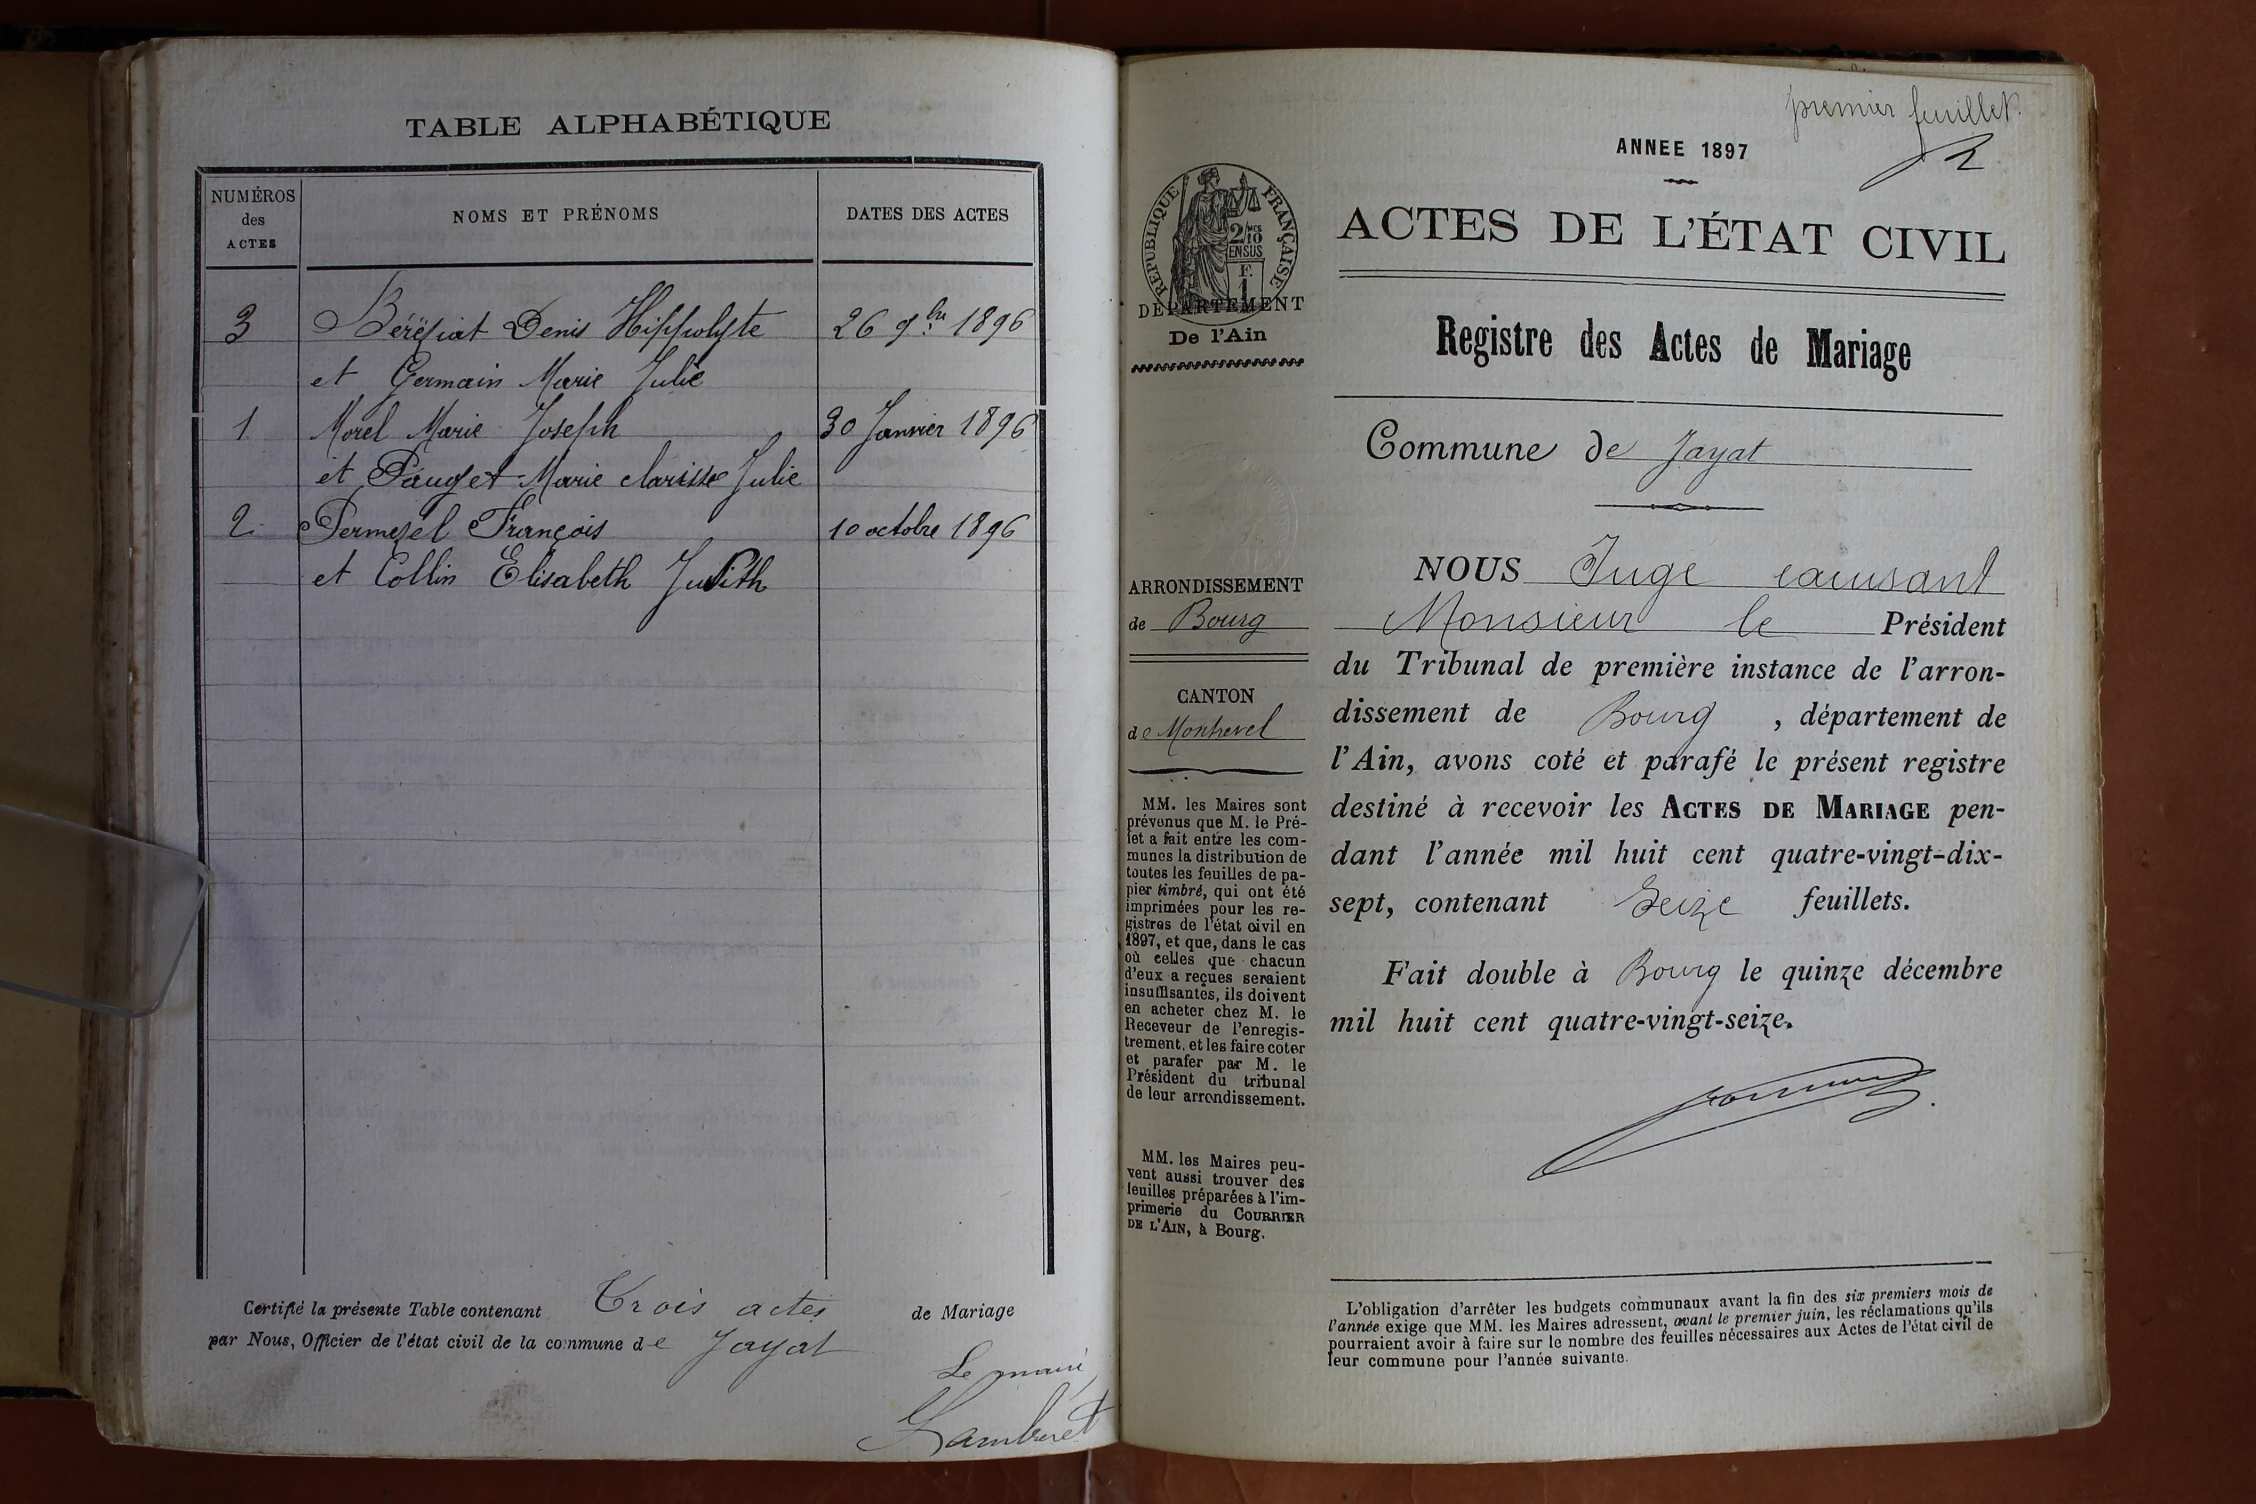 TABLE ALPHABÉTIQUE
NUMÉROS des ACTES
NOMS ET PRÉNOMS
DATES DES ACTES
3 Béréziat Denis Hippolyte 26 9bre 1896
et Germain Marie Julie
1 Morel Marie Joseph 30 Janvier 1896
et Pauget Marie clarisse Julie
2 Permezel François 10 octobre 1896
et Collin Elisabeth Judith
Certifié la présente Table contenant Trois actes de Mariage
par Nous, Officier de l'état civil de la commune de Jayat
Le maire
premier feuillet.
ANNEE 1897
RÉPUBLIQUE FRANÇAISE
2/10
EN SUS
F.
1
DÉPARTEMENT
De l'Ain
ACTES DE L'ÉTAT CIVIL
Registre des Actes de Mariage
Commune de Jayat
ARRONDISSEMENT
de Bourg
CANTON
de Montrevel
MM. les Maires sont
prévenus que M. le Pré-
fet a fait entre les com-
munes la distribution de
toutes les feuilles de pa-
pier timbré, qui ont été
imprimées pour les re-
gistres de l'état civil en
1897, et que, dans le cas
où celles que chacun
d'eux a reçues seraient
insuffisantes, ils doivent
en acheter chez M. le
Receveur de l'enregis-
trement, et les faire coter
et parafer par M. le
Président du tribunal
de leur arrondissement.
MM. les Maires peu-
vent aussi trouver des
feuilles préparées à l'im-
primerie du COURRIER
DE L'AIN, à Bourg.
NOUS Juge
Monsieur le Président
du Tribunal de première instance de l'arron-
dissement de Bourg , département de
l'Ain, avons coté et parafé le présent registre
destiné à recevoir les ACTES DE MARIAGE pen-
dant l'année mil huit cent quatre-vingt-dix-
sept, contenant Seize feuillets.
Fait double à Bourg le quinze décembre
mil huit cent quatre-vingt-seize.
L'obligation d'arrêter les budgets communaux avant la fin des six premiers mois de
l'année exige que MM. les Maires adressent, avant le premier juin, les réclamations qu'ils
pourraient avoir à faire sur le nombre des feuilles nécessaires aux Actes de l'état civil de
leur commune pour l'année suivante.